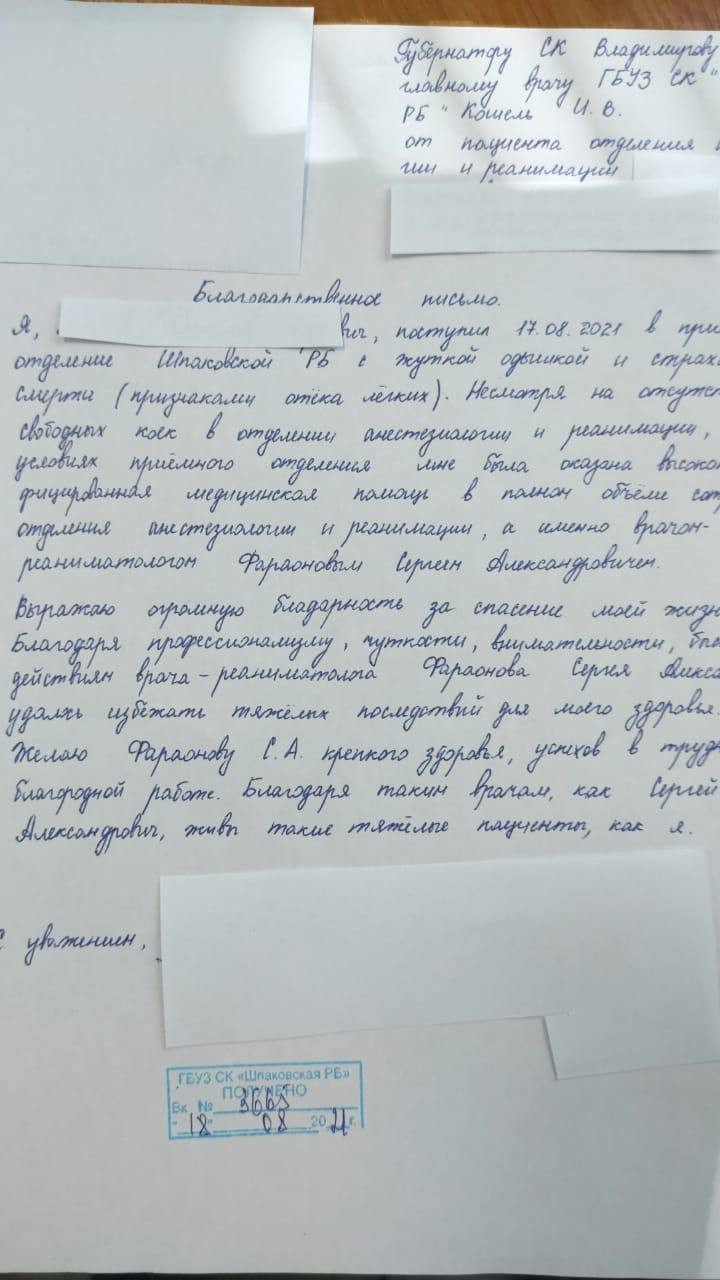 Губернатру СК Владимирову
главному врачу ГБУЗ СК "
РБ" Кошель И.В.
от пациента отделения
гии и реанимации
Благодарственное письмо.
Я, вич, поступил 17.08.2021 в при
отделение Шпаковской РБ с жуткой одышкой и страх
смерти (признаками отёка лёгких). Несмотря на отсутст
свободных коек в отделении анестезиологии и реанимации,
условиях приёмного отделения мне была оказана высоко
фицированная медицинская помощь в полном объёме сот
отделения анестезиологии и реанимации, а именно врачом-
реаниматологом Фараоновым Сергеем Александровичем.
Выражаю огромную бладарность за спасение моей жизн
Благодаря профессионализму, чуткости, внимательности, бы
действиям врача-реаниматолога Фараонова Сергея Алекса
удалсь избежать тяжёлых последствий для моего здоровья.
Желаю Фараонову С.А. крепкого здоровья, успехов в труд
благородной работе. Благодаря таким врачам, как Сергей
Александрович, живы такие тяжёлые пациенты, как я.
С уважением,
ГБУЗ СК «Шпаковская РБ»
ПОЛУЧЕНО
Вх. №
"18" 08 2021г.